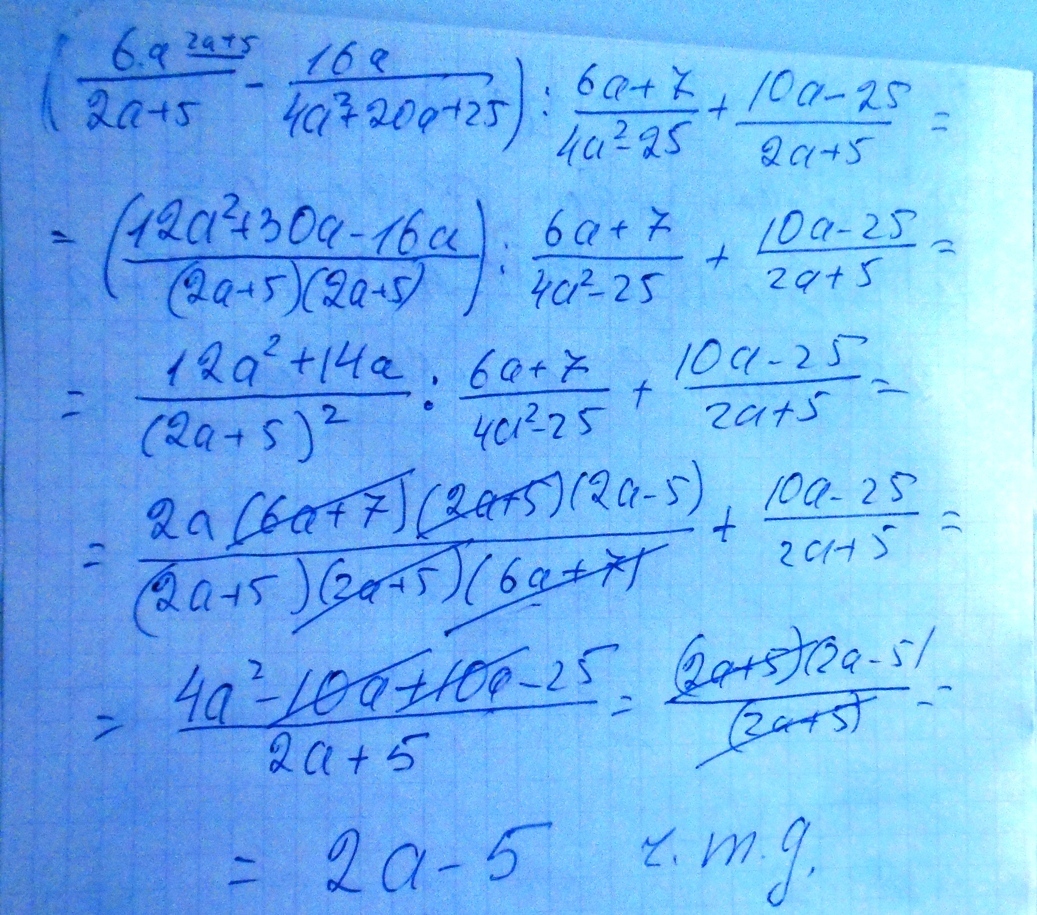 (6a^{2a+5}/(2a+5) - 16a/(4a²+20a+25)) : (6a+7)/(4a²-25) + (10a-25)/(2a+5) =
= ((12a²+30a-16a)/((2a+5)(2a+5))) : (6a+7)/(4a²-25) + (10a-25)/(2a+5) =
= (12a²+14a)/((2a+5)²) : (6a+7)/(4a²-25) + (10a-25)/(2a+5) =
= (2a(6a+7)(2a+5)(2a-5))/((2a+5)(2a+5)(6a+7)) + (10a-25)/(2a+5) =
= (4a²-10a+10a-25)/(2a+5) = ((2a+5)(2a-5))/((2a+5)) =
= 2a-5 ч.т.д.